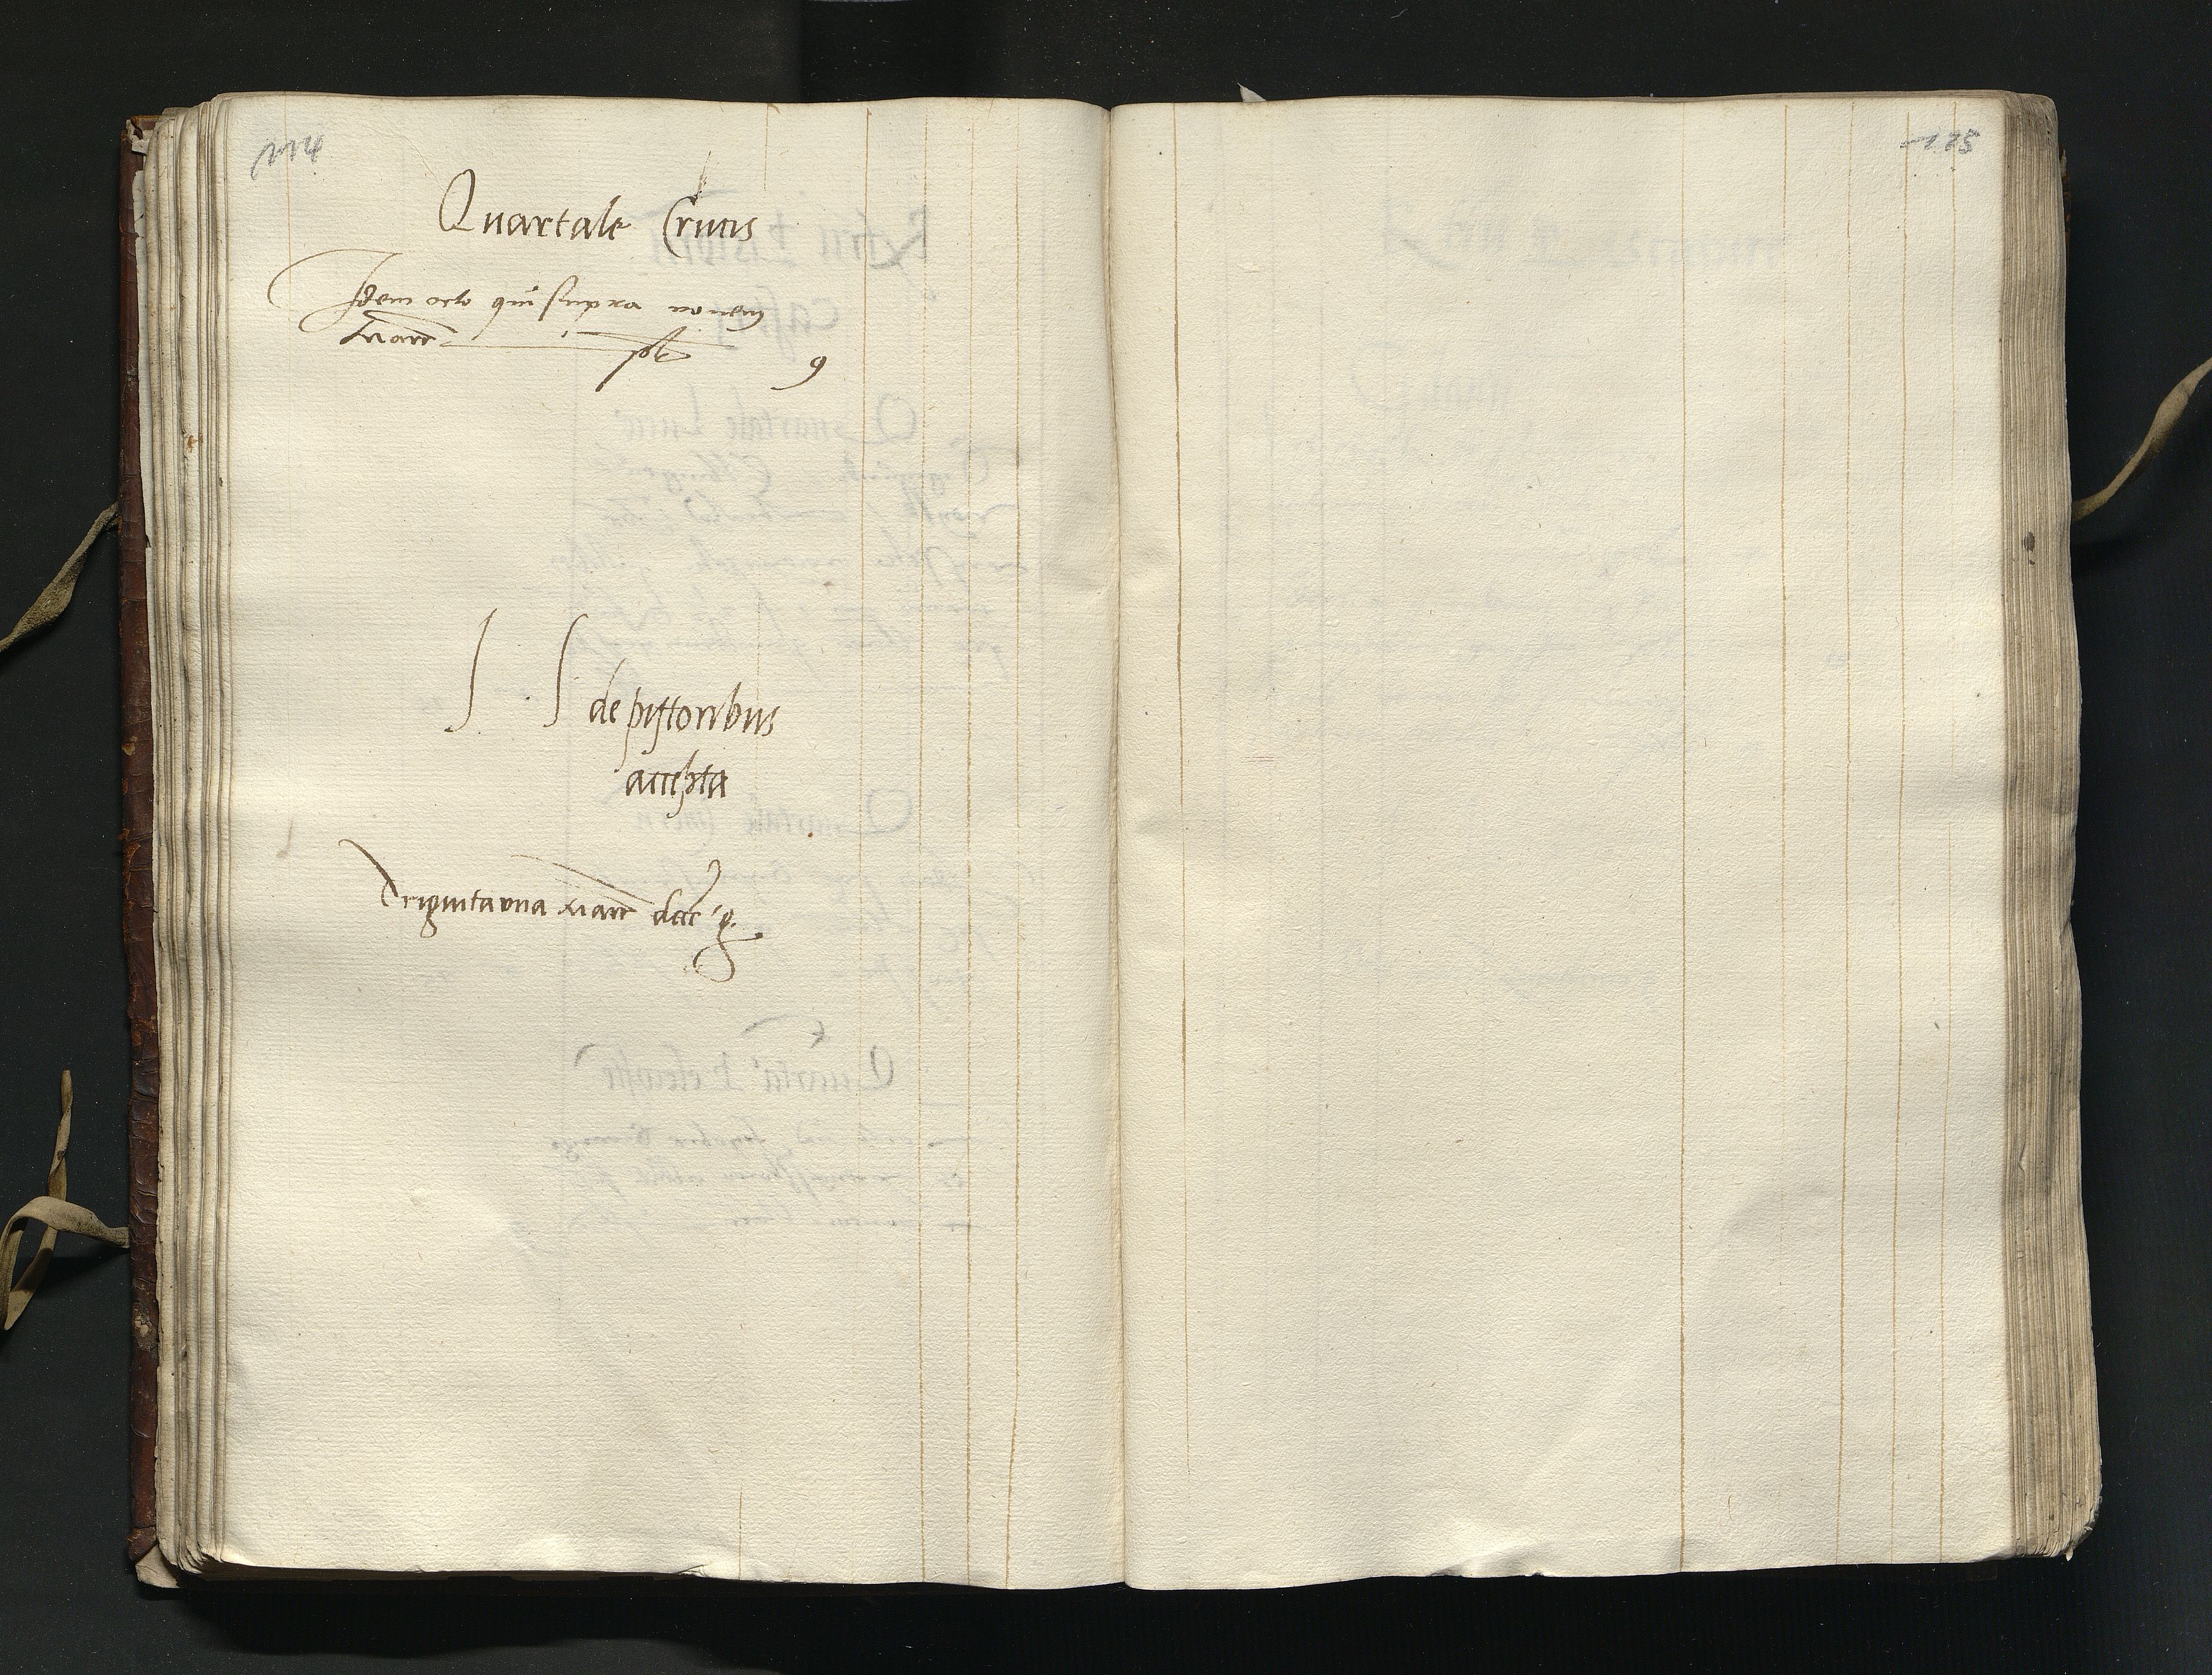 114
Quartale Crucis
Idem octo qui supra novem
marc
sol 9
S S de pistoribus
accepta
Triginta una marc
125